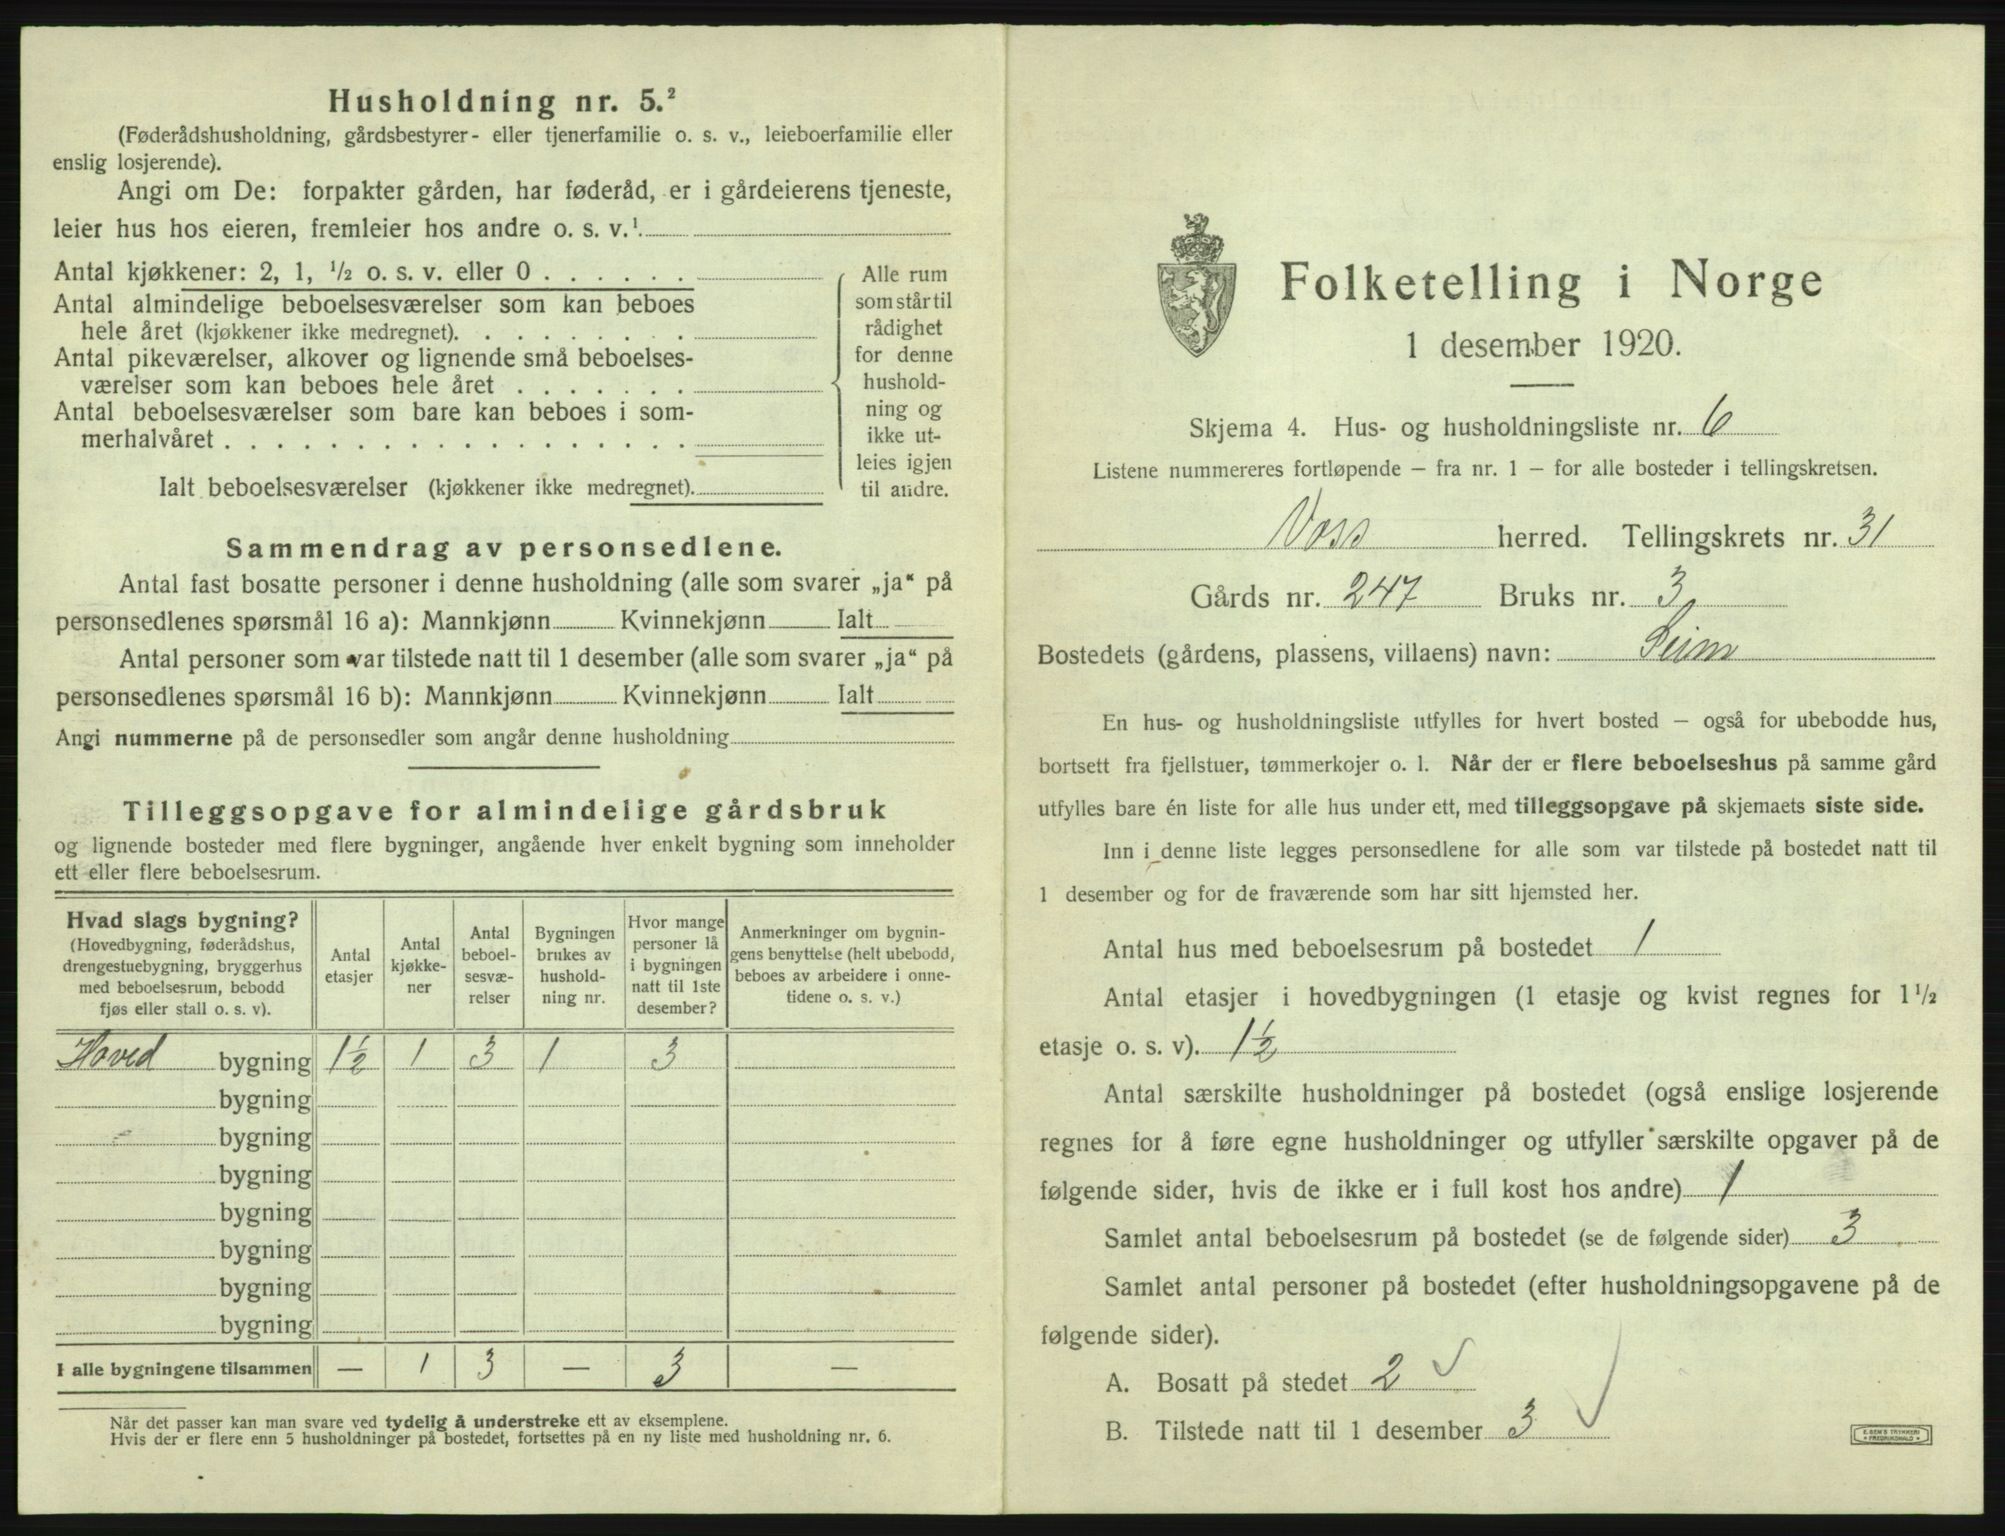 Husholdning nr. 5.²
(Føderådshusholdning, gårdsbestyrer- eller tjenerfamilie o. s. v., leieboerfamilie eller
enslig losjerende).
Angi om De: forpakter gården, har føderåd, er i gårdeierens tjeneste,
leier hus hos eieren, fremleier hos andre o. s. v.¹
Antal kjøkkener: 2, 1, ½ o. s. v. eller 0 . . . . . .
Antal almindelige beboelsesværelser som kan beboes
hele året (kjøkkener ikke medregnet). . . . . . . . .
Antal pikeværelser, alkover og lignende små beboelses-
værelser som kan beboes hele året . . . . . . .
Antal beboelsesværelser som bare kan beboes i som-
merhalvåret . . . . . . . . . . . . . . . . . .
Ialt beboelsesværelser (kjøkkener ikke medregnet).
Alle rum
som står til
rådighet
for denne
hushold-
ning og
ikke ut-
leies igjen
til andre.
Sammendrag av personsedlene.
Antal fast bosatte personer i denne husholdning (alle som svarer „ja“ på
personsedlenes spørsmål 16 a): Mannkjønn Kvinnekjønn Ialt
Antal personer som var tilstede natt til 1 desember (alle som svarer „ja“ på
personsedlenes spørsmål 16 b): Mannkjønn Kvinnekjønn Ialt
Angi nummerne på de personsedler som angår denne husholdning
Tilleggsopgave for almindelige gårdsbruk
og lignende bosteder med flere bygninger, angående hver enkelt bygning som inneholder
ett eller flere beboelsesrum.
Hvad slags bygning?
(Hovedbygning, føderådshus,
drengestuebygning, bryggerhus
med beboelsesrum, bebodd
fjøs eller stall o. s. v).
Antal
etasjer
Antal
kjøkke-
ner
Antal
beboel-
sesvæ-
relser
Bygningen
brukes av
hushold-
ning nr.
Hvor mange
personer lå
i bygningen
natt til 1ste
desember?
Anmerkninger om bygnin-
gens benyttelse (helt ubebodd,
beboes av arbeidere i onne-
tidene o. s. v.)
Hoved bygning 1½ 1 3 1 3
bygning
bygning
bygning
bygning
bygning
bygning
bygning
I alle bygningene tilsammen — 1 3 — 3 —
Når det passer kan man svare ved tydelig å understreke ett av eksemplene.
Hvis der er flere enn 5 husholdninger på bostedet, fortsettes på en ny liste med husholdning nr. 6.
Folketelling i Norge
1 desember 1920.
Skjema 4. Hus- og husholdningsliste nr. 6
Listene nummereres fortløpende — fra nr. 1 — for alle bosteder i tellingskretsen.
Voss herred. Tellingskrets nr. 31
Gårds nr. 247 Bruks nr. 3
Bostedets (gårdens, plassens, villaens) navn: Seim
En hus- og husholdningsliste utfylles for hvert bosted — også for ubebodde hus,
bortsett fra fjellstuer, tømmerkojer o. l. Når der er flere beboelseshus på samme gård
utfylles bare én liste for alle hus under ett, med tilleggsopgave på skjemaets siste side.
Inn i denne liste legges personsedlene for alle som var tilstede på bostedet natt til
1 desember og for de fraværende som har sitt hjemsted her.
Antal hus med beboelsesrum på bostedet 1
Antal etasjer i hovedbygningen (1 etasje og kvist regnes for 1½
etasje o. s. v). 1½
Antal særskilte husholdninger på bostedet (også enslige losjerende
regnes for å føre egne husholdninger og utfyller særskilte opgaver på de
følgende sider, hvis de ikke er i full kost hos andre) 1
Samlet antal beboelsesrum på bostedet (se de følgende sider) 3
Samlet antal personer på bostedet (efter husholdningsopgavene på de
følgende sider).
A. Bosatt på stedet 2 ✓
B. Tilstede natt til 1 desember 3 ✓
E. SEM'S TRYKKERI
• FREDRIKSHALD •